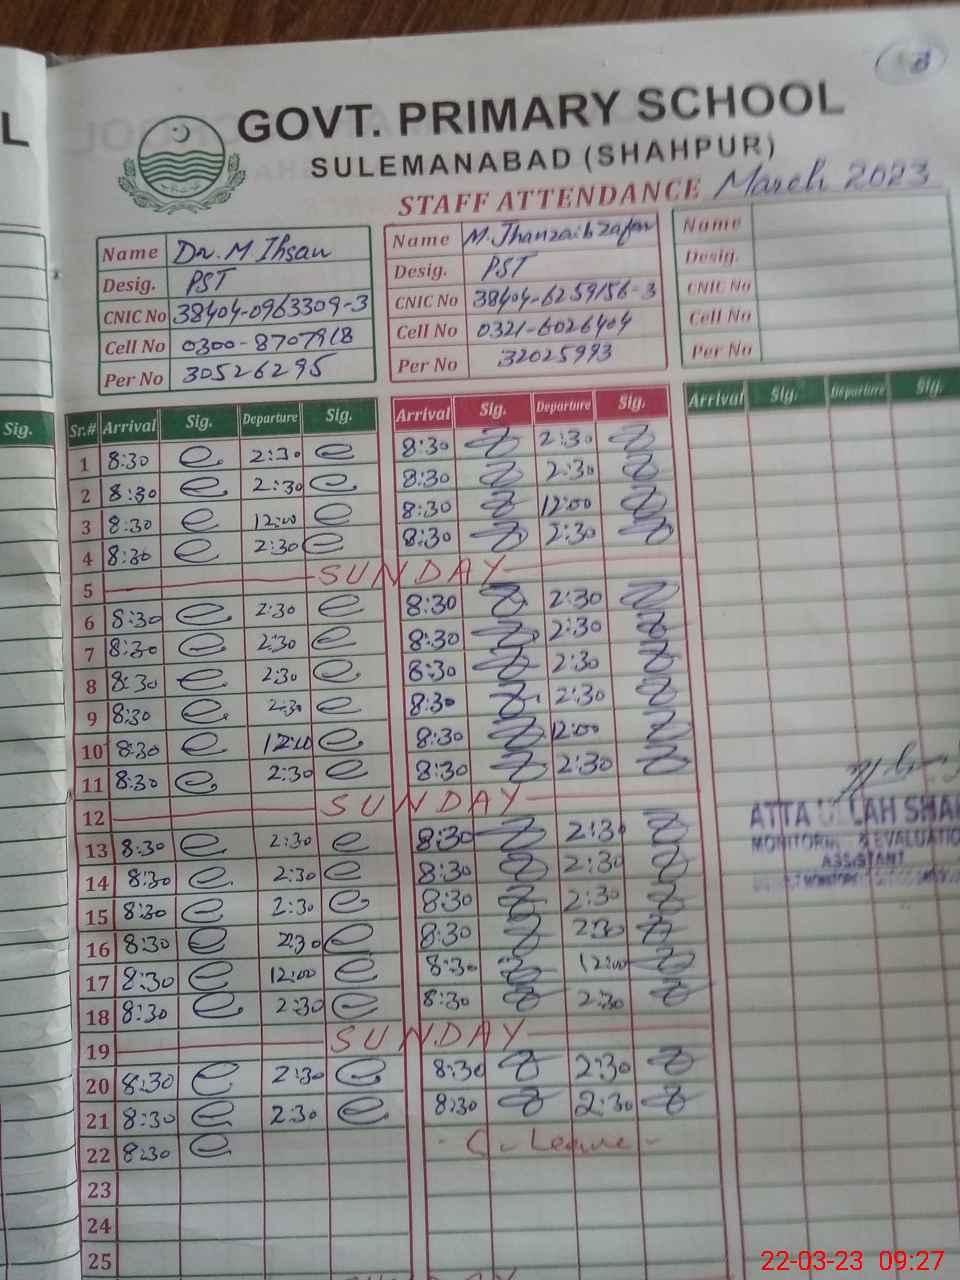 L
GOVT. PRIMARY SCHOOL
SULEMANABAD (SHAHPUR)
STAFF ATTENDANCE March 2023
Name Dr. M. Ihsan
Desig. PST
CNIC No 38404-0963309-3
Cell No 0300-8707918
Per No 30526295
Name M. Jhanzaib Zafar
Desig. PST
CNIC No 38404-6259156-3
Cell No 0321-6026404
Per No 32025993
Name
Desig.
CNIC No
Cell No
Per No
Sig.
Sr.# Arrival Sig. Departure Sig. Arrival Sig. Departure Sig. Arrival Sig. Departure Sig.
1 8:30 2:30 8:30 2:30
2 8:30 2:30 8:30 2:30
3 8:30 12:00 8:30 12:00
4 8:30 2:30 8:30 2:30
5 SUNDAY
6 8:30 2:30 8:30 2:30
7 8:30 2:30 8:30 2:30
8 8:30 2:30 8:30 2:30
9 8:30 2:30 8:30 2:30
10 8:30 12:00 8:30 12:00
11 8:30 2:30 8:30 2:30
12 SUNDAY
13 8:30 2:30 8:30 2:30
14 8:30 2:30 8:30 2:30
15 8:30 2:30 8:30 2:30
16 8:30 2:30 8:30 2:30
17 8:30 12:00 8:30 12:00
18 8:30 2:30 8:30 2:30
19 SUNDAY
20 8:30 2:30 8:30 2:30
21 8:30 2:30 8:30 2:30
22 8:30 - C-Leave -
23
24
25
ATTA ULLAH SHAH
MONITORING & EVALUATION
ASSISTANT
22-03-23 09:27